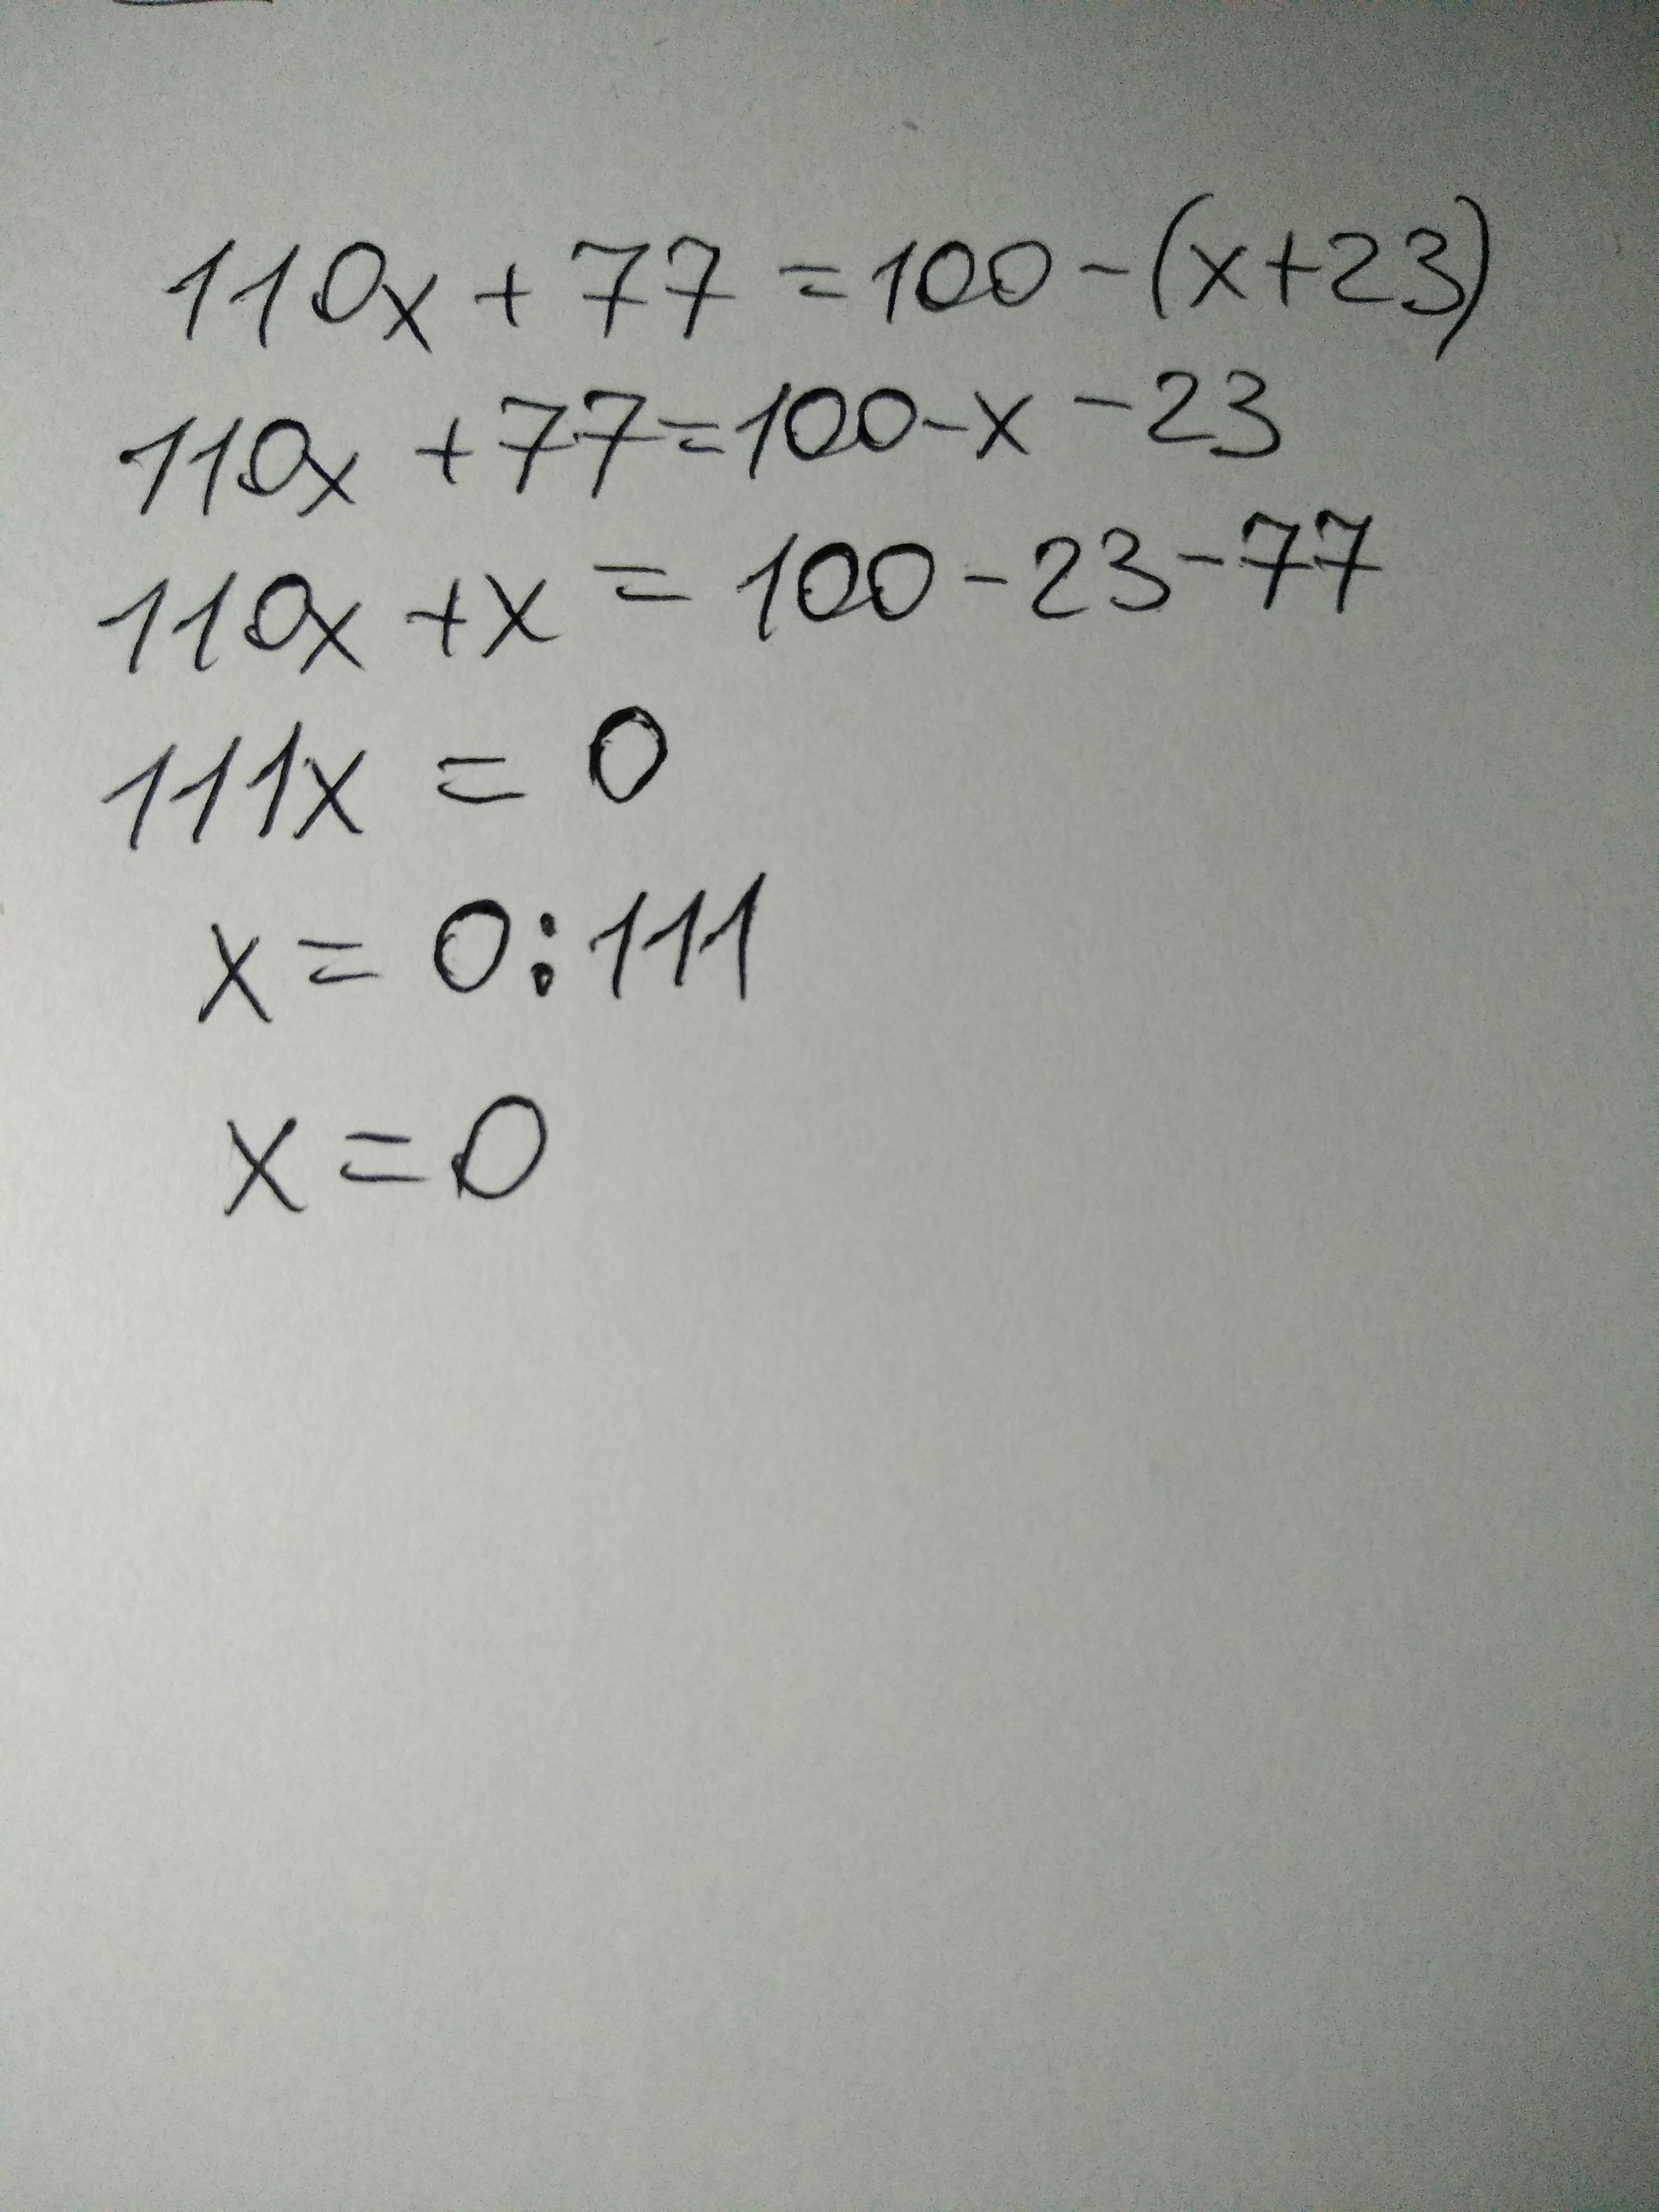 110x + 77 = 100 - (x + 23)
110x + 77 = 100 - x - 23
110x + x = 100 - 23 - 77
111x = 0
x = 0 : 111
x = 0